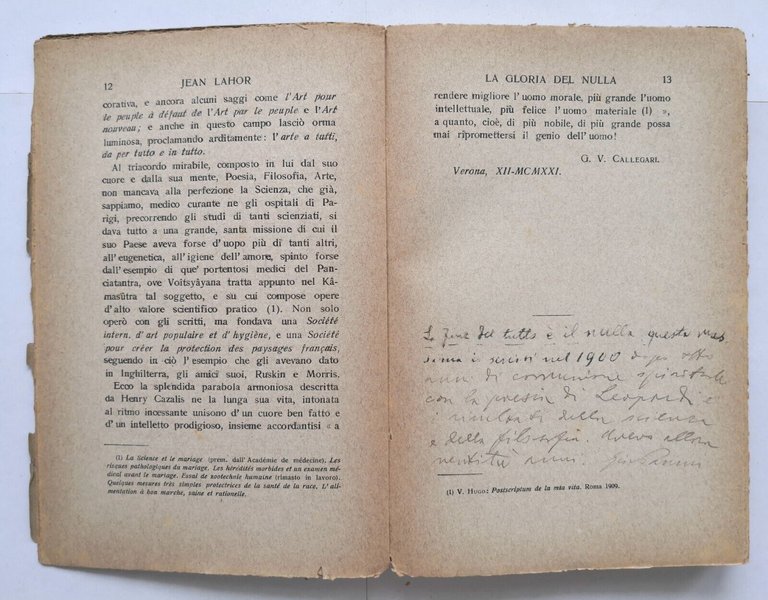 12 JEAN LAHOR
corativa, e ancora alcuni saggi come l'Art pour
le peuple à défaut de l'Art par le peuple e l'Art
nouveau; e anche in questo campo lasciò orma
luminosa, proclamando arditamente: l'arte a tutti,
da per tutto e in tutto.
Al triacordo mirabile, composto in lui dal suo
cuore e dalla sua mente, Poesia, Filosofia, Arte,
non mancava alla perfezione la Scienza, che già,
sappiamo, medico curante ne gli ospitali di Pa-
rigi, precorrendo gli studi di tanti scienziati, si
dava tutto a una grande, santa missione di cui il
suo Paese aveva forse d'uopo più di tanti altri,
all'eugenetica, all'igiene dell'amore, spinto forse
dall'esempio di que' portentosi medici del Pan-
ciatantra, ove Voitsyâyana tratta appunto nel Kâ-
masûtra tal soggetto, e su cui compose opere
d'alto valore scientifico pratico (1). Non solo
operò con gli scritti, ma fondava una Société
intern. d'art populaire et d'hygiène, e una Société
pour créer la protection des paysages français,
seguendo in ciò l'esempio che gli avevano dato
in Inghilterra, gli amici suoi, Ruskin e Morris.
Ecco la splendida parabola armoniosa descritta
da Henry Cazalis ne la lunga sua vita, intonata
al ritmo incessante unisono d'un cuore ben fatto e
d'un intelletto prodigioso, insieme accordantisi « a
(1) La Science et le mariage (prem. dall'Académie de médecine). Les
risques pathologiques du mariage. Les hérédités morbides et un examen mé-
dical avant le mariage. Essai de zootechnie humaine (rimasto in lavoro).
Quelques mesures très simples protectrices de la santé de la race. L'ali-
mentation à bon marche, saine et rationelle.
LA GLORIA DEL NULLA 13
rendere migliore l'uomo morale, più grande l'uomo
intellettuale, più felice l'uomo materiale (1) »,
a quanto, cioè, di più nobile, di più grande possa
mai ripromettersi il genio dell'uomo!
G. V. CALLEGARI.
Verona, XII-MCMXXI.
La fine del tutto è il nulla questa mas
sima io scrissi nel 1900 dopo otto
anni di comunione spirituale
con la poesia di Leopardi e
i risultati della scienza
e della filosofia. Avevo allora
ventitrè anni
(1) V. HUGO: Postscriptum de la mia vita. Roma 1909.